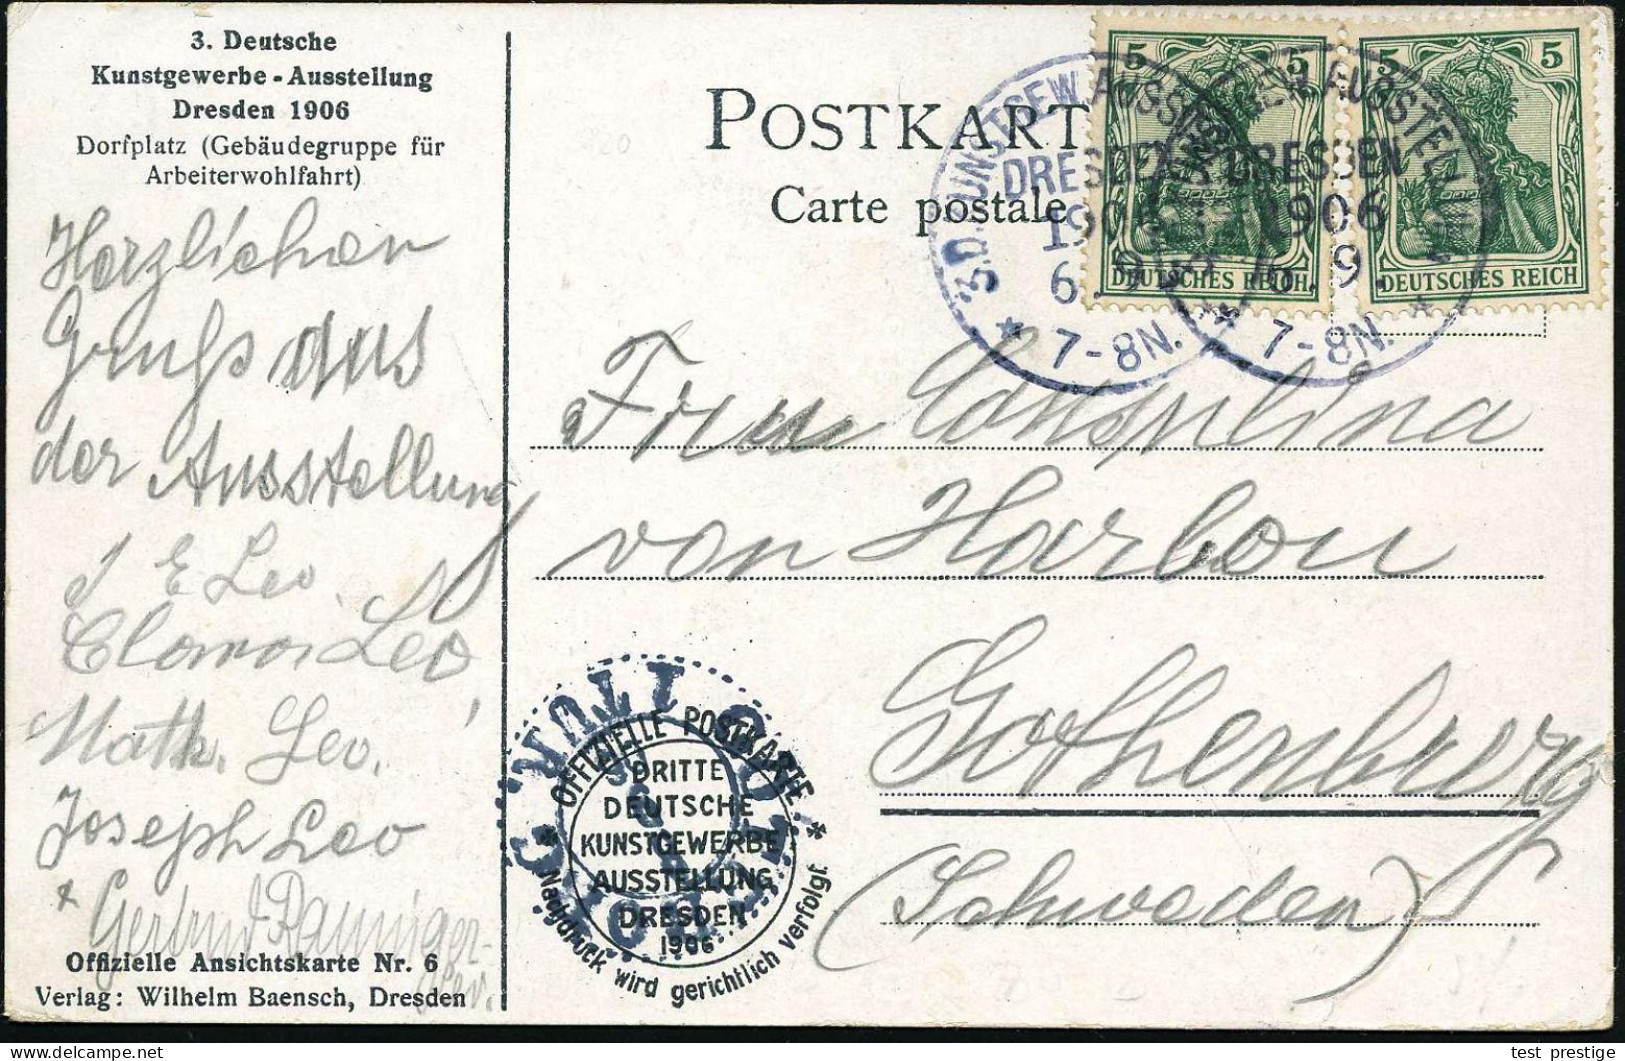 3. Deutsche
Kunstgewerbe - Ausstellung
Dresden 1906
Dorfplatz (Gebäudegruppe für
Arbeiterwohlfahrt)
POSTKART
Carte postale
5 5
DEUTSCHES REICH
5 5
DEUTSCHES REICH
3.D.KUNSTGEW. AUSSTELLUNG
DRESDEN
1906
6. 9.
* 7-8N. *
AUSSTELLUNG
DRESDEN
1906
6. 9.
7-8N. *
Herzlichen
Gruß aus
der Ausstellung
E. Leo.
Clara Leo,
Math. Leo.
Joseph Leo
Gertrud
Frau
von Harbou
Gothenburg
(Schweden)
* OFFIZIELLE POSTKARTE *
DRITTE
DEUTSCHE
KUNSTGEWERBE
AUSSTELLUNG
DRESDEN
1906
Nachdruck wird gerichtlich verfolgt
Offizielle Ansichtskarte Nr. 6
Verlag: Wilhelm Baensch, Dresden
test_prestige @ delcampe.net